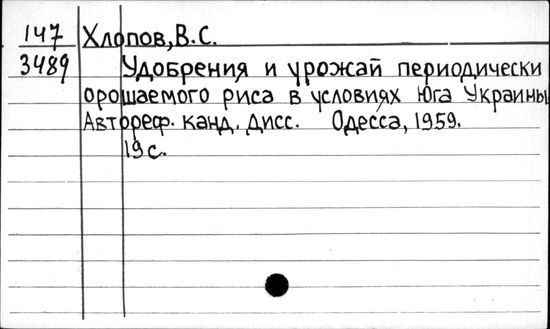 147 Хлопов, В.С.
3489 Удобрения и урожай периодически
орошаемого риса в условиях Юга Украины
Автореф. канд. дисс. Одесса, 1959.
19 с.